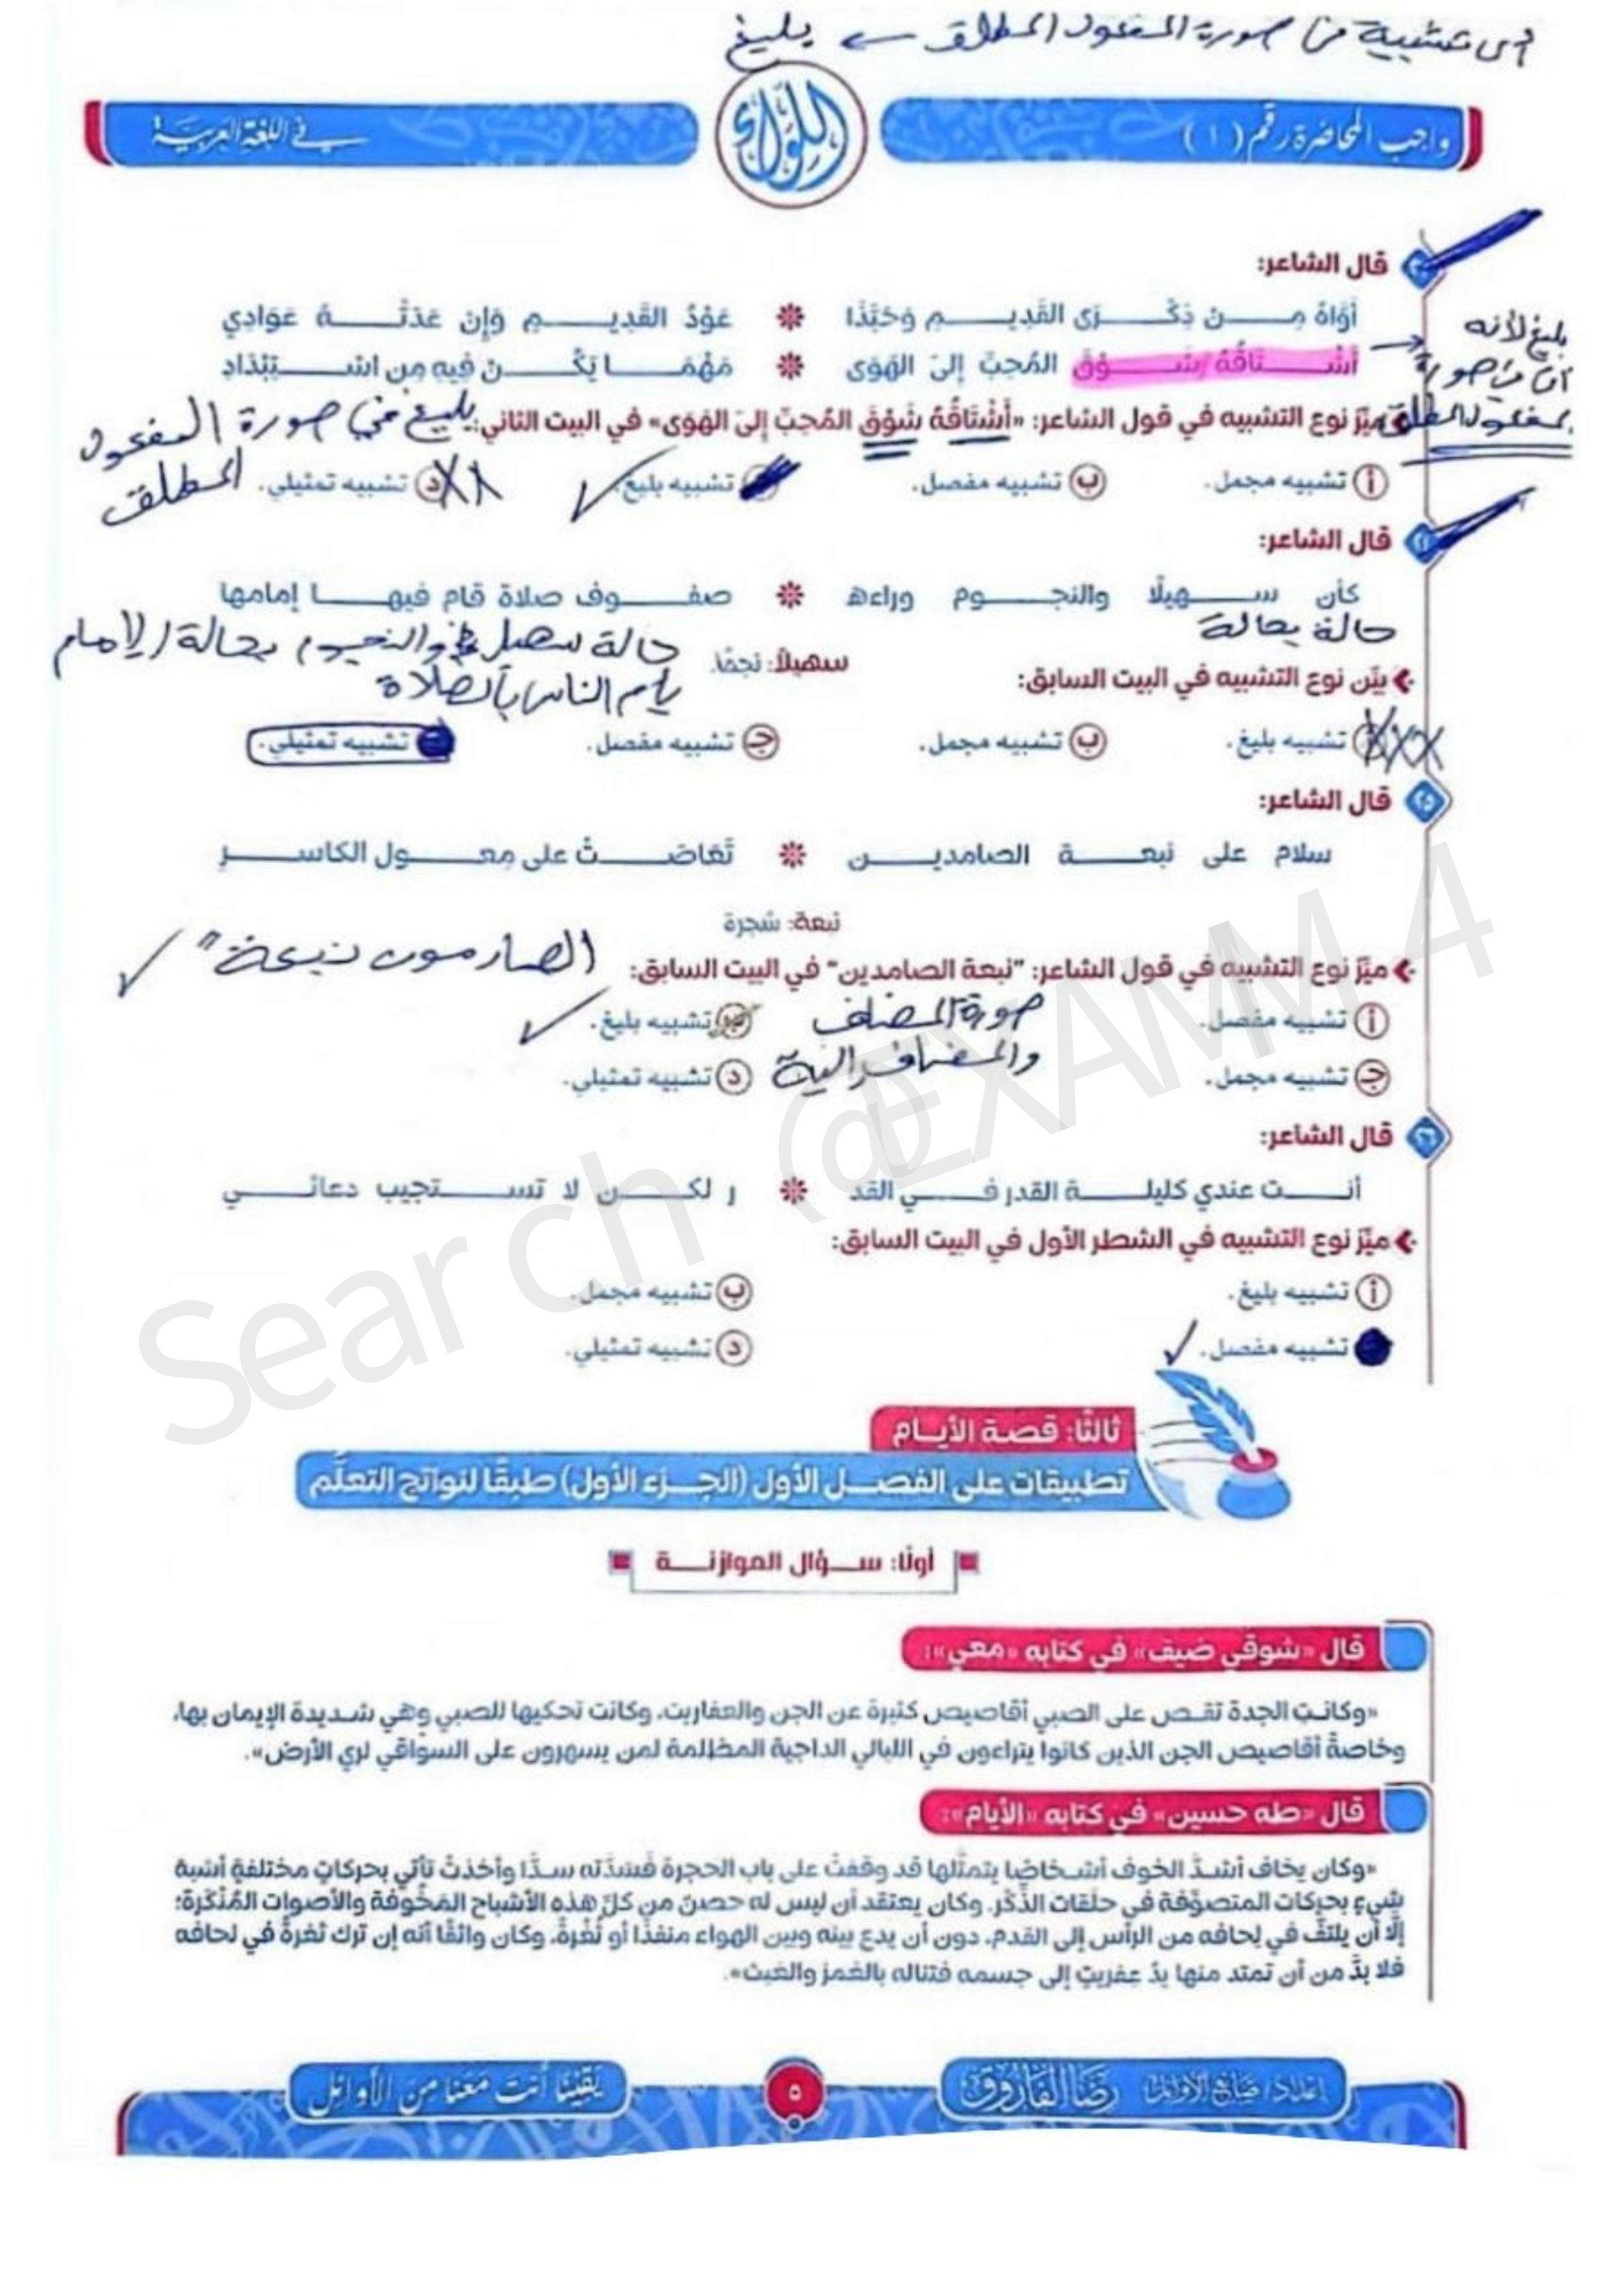 أى تشبية فى صورة المفعول المطلق ← بليغ
واجب المحاضرة رقم ( ١ )
اللواء
في اللغة العربية
قال الشاعر:
أَوَّاهُ مِـــن ذِكْـــرَى القَدِيـــمِ وَحَبَّذَا * عَوْدُ القَدِيـــمِ وَإِن عَدَتْـــهُ عَوَادِي
أَشْـــتَاقُهُ شَـــوْقَ المُحِبِّ إلىَ الهَوَى * مَهْمَـــا يَكُـــنْ فِيهِ مِن اسْـــتِبْدَادِ
بليغ لأنه
صورة
المفعول المطلق
ميِّز نوع التشبيه في قول الشاعر: «أَشْتَاقُهُ شَوْقَ المُحِبِّ إلىَ الهَوَى» في البيت الثاني:
بليغ في صورة المفعول
المطلق
أ تشبيه مجمل.
ب تشبيه مفصل.
تشبيه بليغ.
د تشبيه تمثيلي.
قال الشاعر:
كأن ســـهيلًا والنجـــوم وراءه * صفـــوف صلاة قام فيهـــا إمامها
حالة بحالة
سهيلًا: نجمًا.
حالة سهيل والنجوم بحالة الإمام
يأم الناس بالصلاة
بيِّن نوع التشبيه في البيت السابق:
تشبيه بليغ.
ب تشبيه مجمل.
ج تشبيه مفصل.
تشبيه تمثيلي.
٢٥ قال الشاعر:
سلام على نبعـــة الصامديـــن * تَعَاصَـــتْ على مِعـــول الكاســـرِ
نبعة: شجرة
ميِّز نوع التشبيه في قول الشاعر: "نبعة الصامدين" في البيت السابق:
الصامدون نبعة"
أ تشبيه مفصل.
تشبيه بليغ.
صورة المضاف
والمضاف الية
ج تشبيه مجمل.
د تشبيه تمثيلي.
٢٦ قال الشاعر:
أنـــت عندي كليلـــة القدر فـــي القد * ر لكـــن لا تســـتجيب دعائـــي
ميِّز نوع التشبيه في الشطر الأول في البيت السابق:
أ تشبيه بليغ.
ب تشبيه مجمل.
تشبيه مفصل.
د تشبيه تمثيلي.
ثالثًا: قصة الأيـــام
تطبيقات على الفصـــل الأول (الجـــزء الأول) طبقًا لنواتج التعلُّم
أولًا: ســـؤال الموازنـــة
قال «شوقي ضيف» في كتابه «معي»:
«وكانت الجدة تقـص على الصبي أقاصيص كثيرة عن الجن والعفاريت، وكانت تحكيها للصبي وهي شـديدة الإيمان بها،
وخاصةً أقاصيص الجن الذين كانوا يتراءون في الليالي الداجية المظلمة لمن يسهرون على السواقي لري الأرض».
قال «طه حسين» في كتابه «الأيام»:
«وكان يخاف أشـدَّ الخوف أشـخاصًا يتمثَّلها قد وقفتْ على باب الحجرة فَسَدَّته سـدًّا وأخذتْ تأتي بحركاتٍ مختلفةٍ أشبهَ
شيءٍ بحركات المتصوِّفة في حلَقات الذِّكْر. وكان يعتقد أن ليس له حصنٌ من كلِّ هذه الأشباح المَخُوفة والأصوات المُنْكَرة؛
إلَّا أن يلتفَّ في لِحافه من الرأس إلى القدم، دون أن يدع بينه وبين الهواء منفذًا أو ثُغْرةً، وكان واثقًا أنه إن ترك ثغرةً في لحافه
فلا بدَّ من أن تمتد منها يدُ عِفريتٍ إلى جسمه فتناله بالغمز والعبث».
Search @EXAMM 4
إعداد/ صانع الأوائل رضا الفاروق
٥
يقينًا أنت معنا من الأوائل